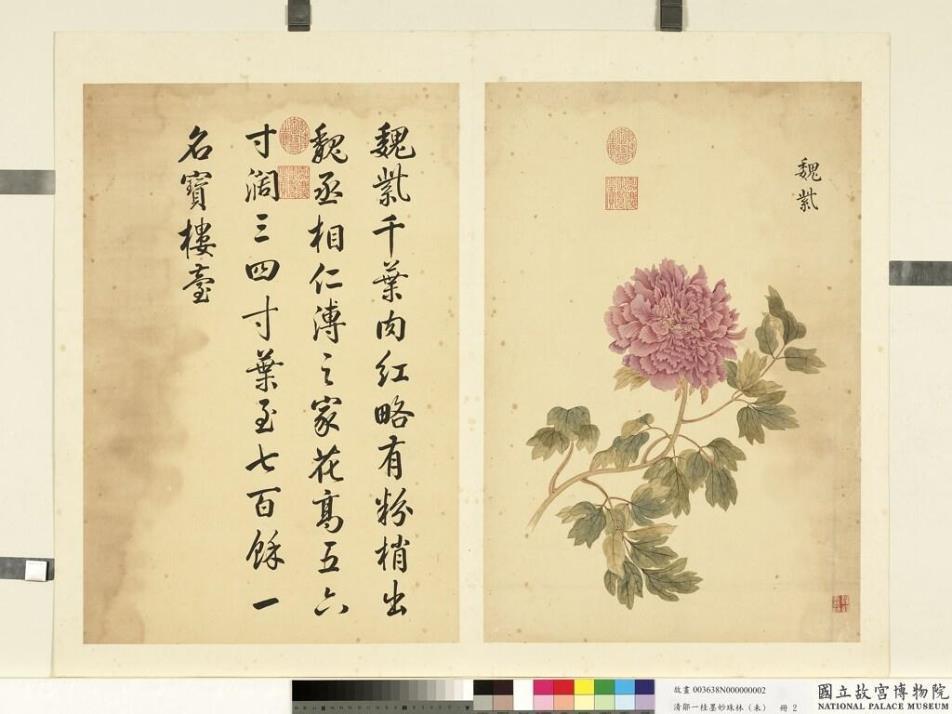 魏紫
魏紫千葉肉紅略有粉梢出
魏丞相仁溥之家花高五六
寸濶三四寸葉至七百餘一
名寶樓臺
故畫 003638N000000002
清鄒一桂墨妙珠林（未） 冊 2
國立故宮博物院
NATIONAL PALACE MUSEUM